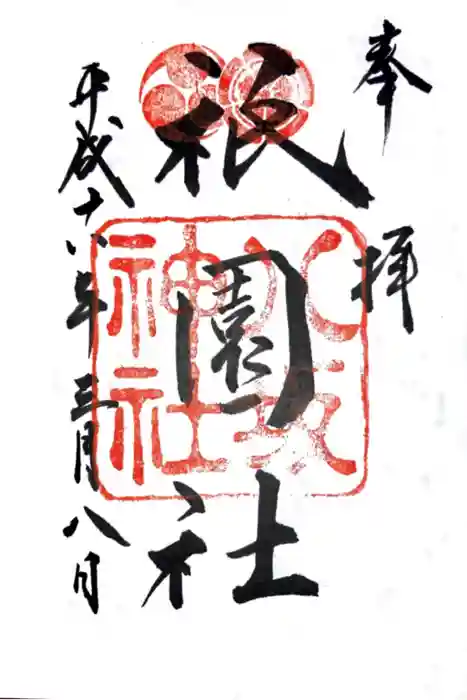 奉拝
祇園社
八坂
神社
平成十八年三月八日